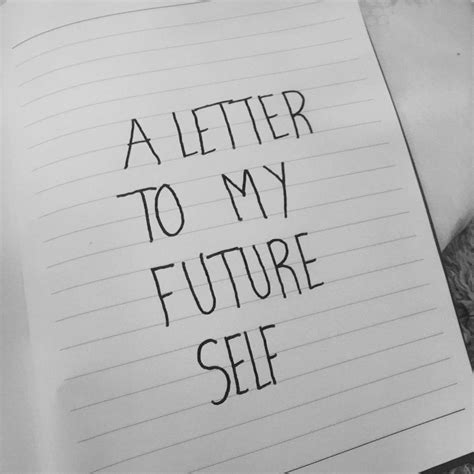 A LETTER
TO MY
FUTURE
SELF